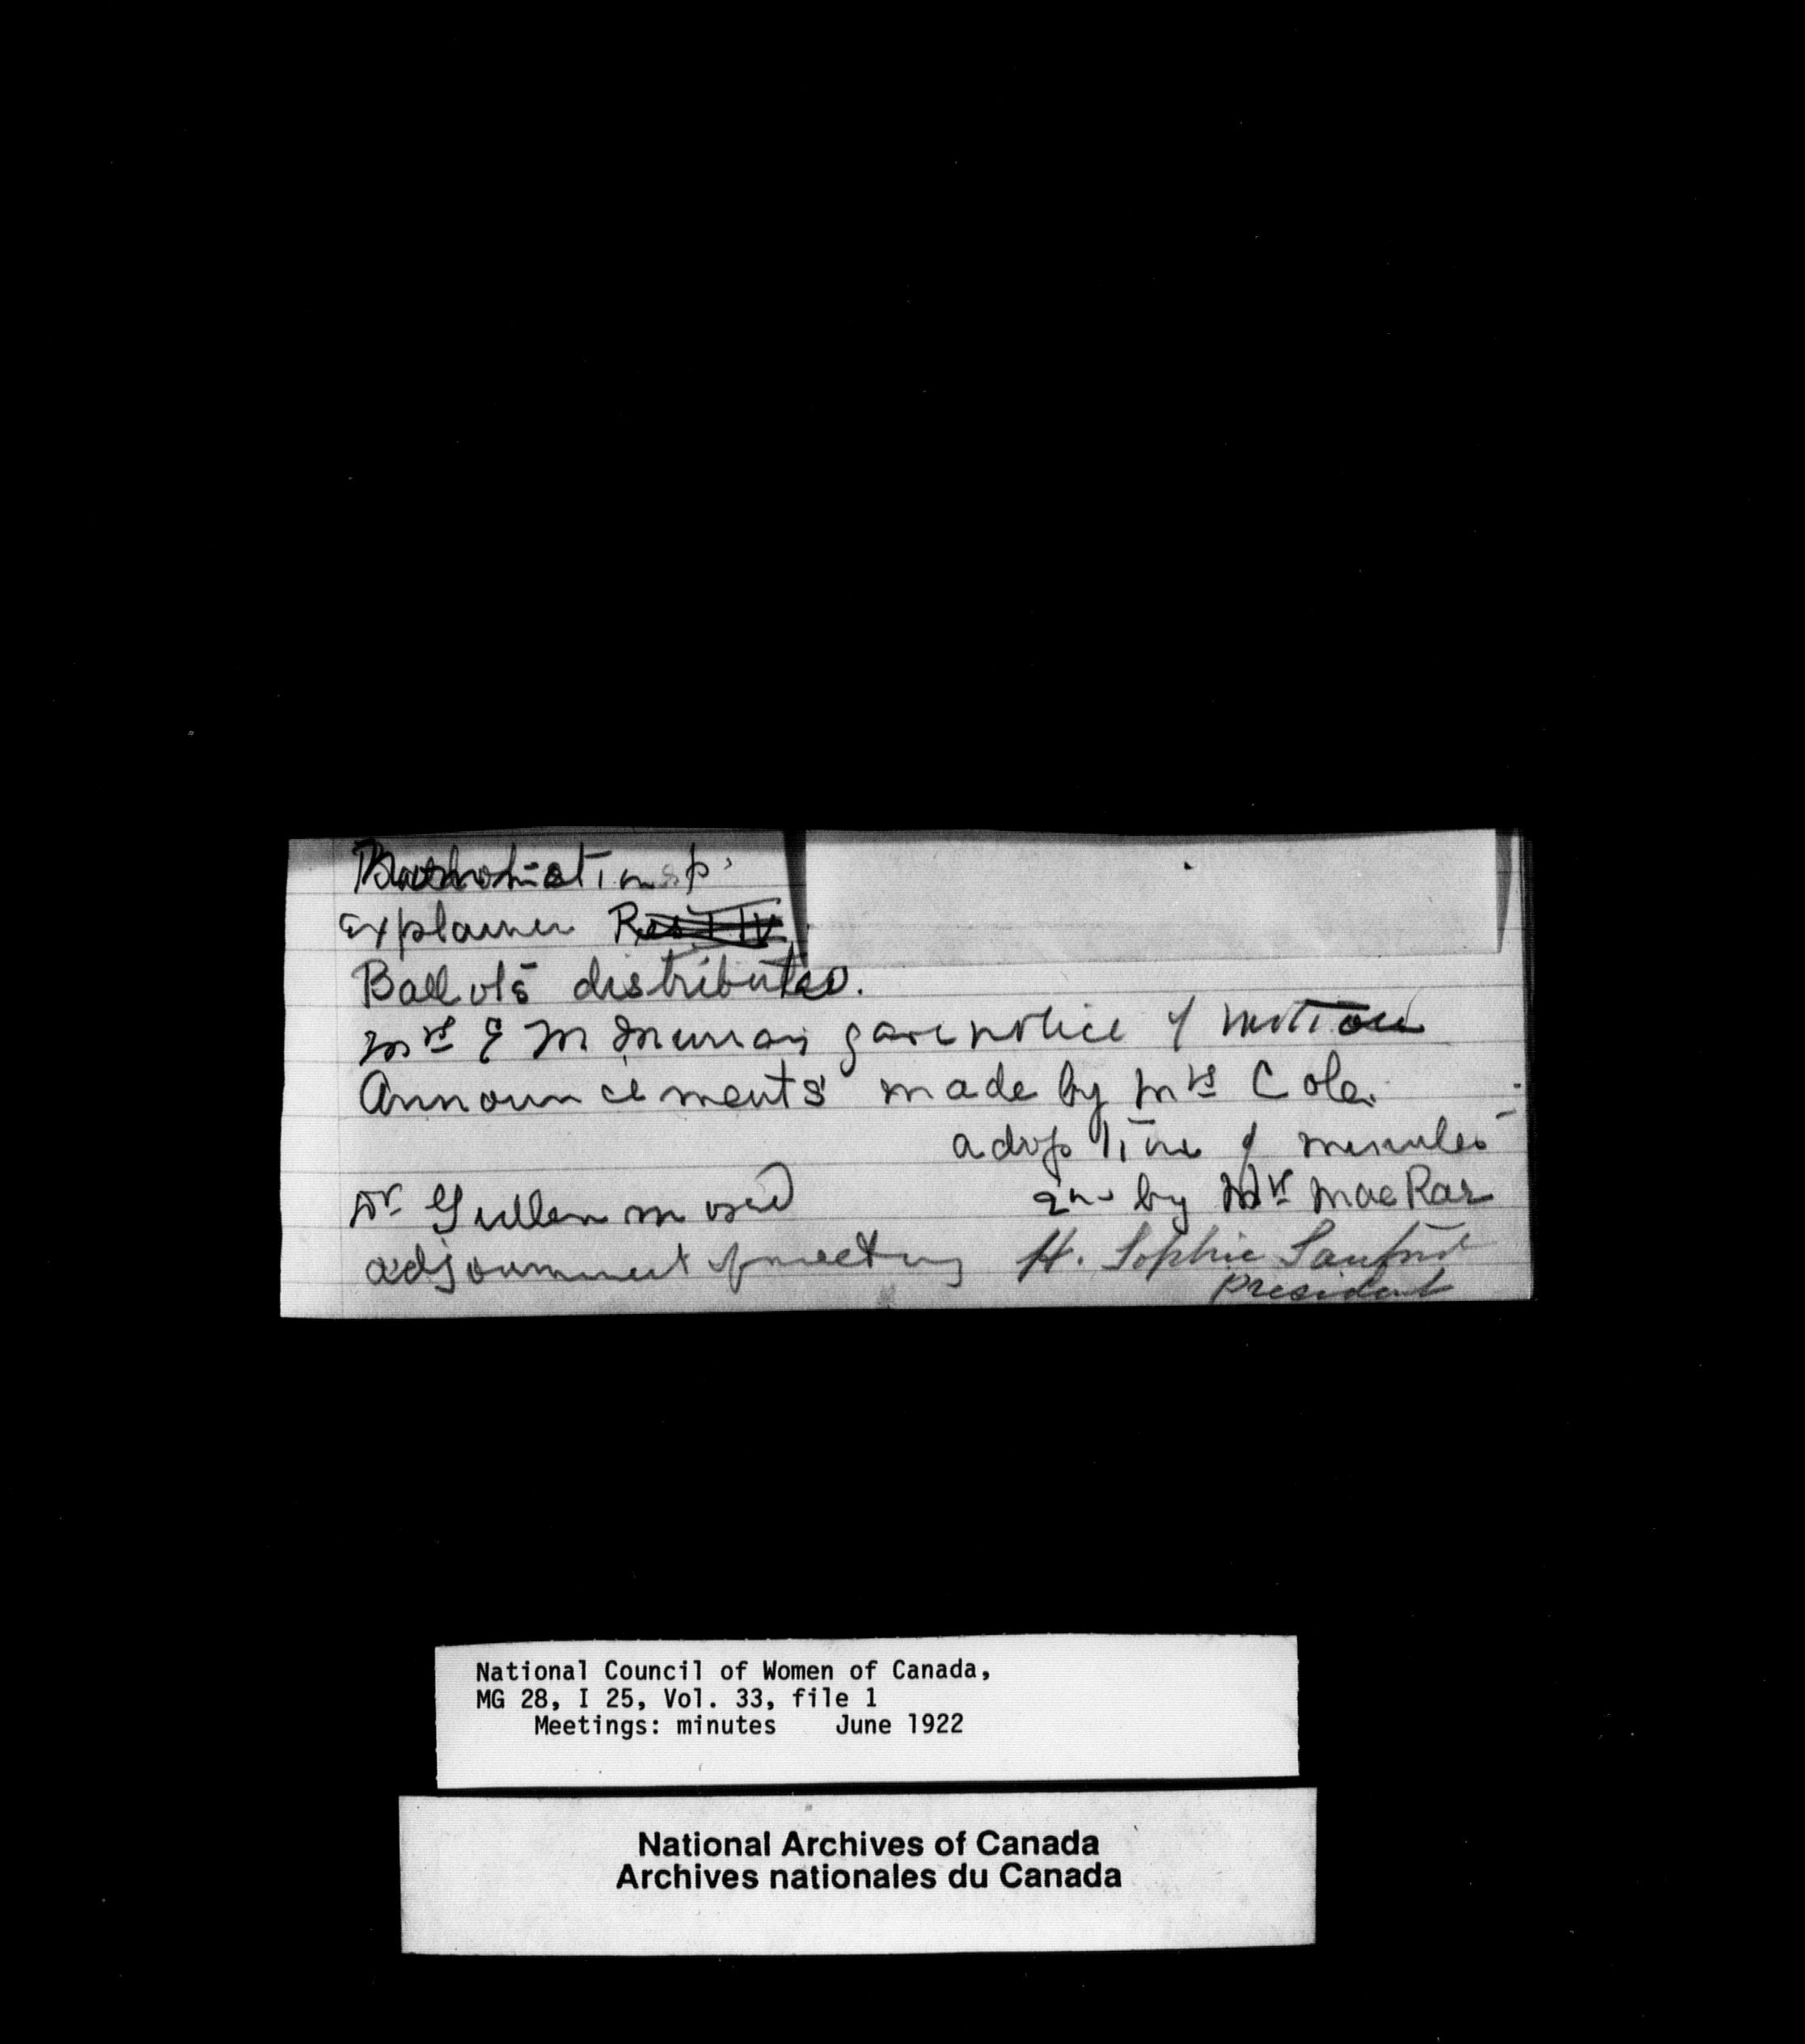 explained Res IV
Ballots distributed.
Mrs E M Murray gave notice of motion
Announcements made by Mrs Cole.
adoption of minutes
Dr Gullen moved
2nd by Mrs MacRae
adjournment of meeting
H. Sophie Sanford
President
National Council of Women of Canada,
MG 28, I 25, Vol. 33, file 1
Meetings: minutes June 1922
National Archives of Canada
Archives nationales du Canada